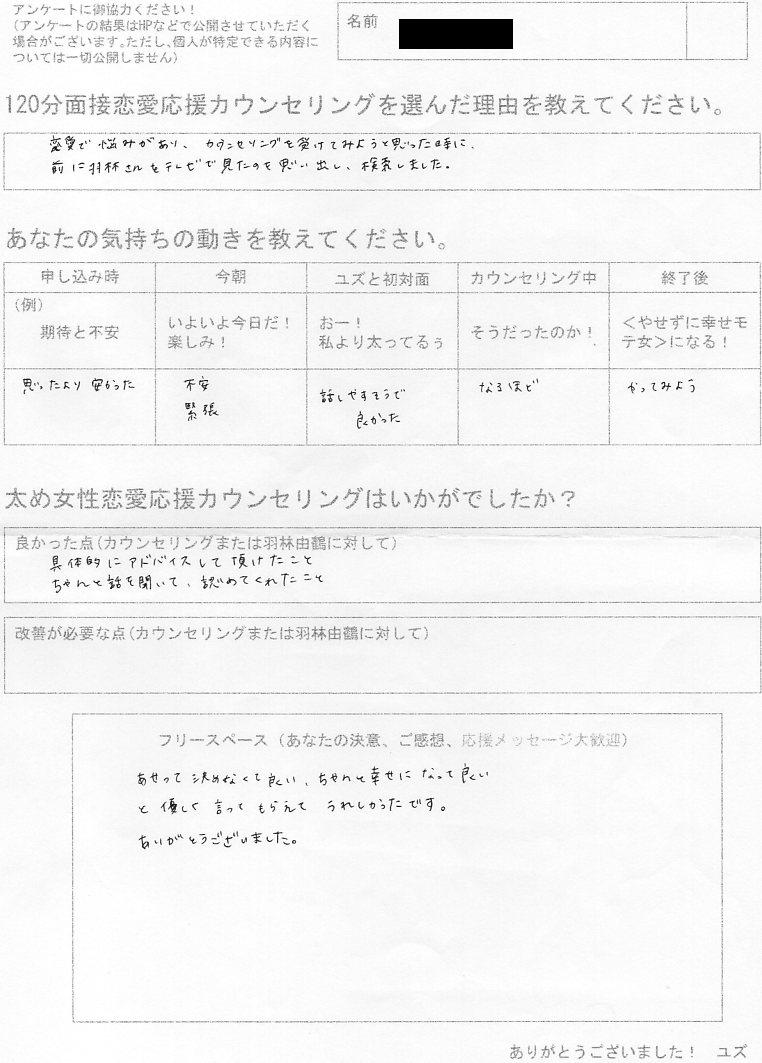 アンケートに御協力ください！
（アンケートの結果はHPなどで公開させていただく
場合がございます。ただし、個人が特定できる内容に
ついては一切公開しません）
名前
120分面接恋愛応援カウンセリングを選んだ理由を教えてください。
恋愛で悩みがあり、カウンセリングを受けてみようと思った時に、
前に羽林さんをテレビで見たのを思い出し、検索しました。
あなたの気持ちの動きを教えてください。
申し込み時 今朝 ユズと初対面 カウンセリング中 終了後
（例）
期待と不安
いよいよ今日だ！
楽しみ！
おー！
私より太ってるぅ
そうだったのか！
＜やせずに幸せモ
テ女＞になる！
思ったより安かった
不安
緊張
話しやすそうで
良かった
なるほど
やってみよう
太め女性恋愛応援カウンセリングはいかがでしたか？
良かった点（カウンセリングまたは羽林由鶴に対して）
具体的にアドバイスして頂けたこと
ちゃんと話を聞いて、認めてくれたこと
改善が必要な点（カウンセリングまたは羽林由鶴に対して）
フリースペース（あなたの決意、ご感想、応援メッセージ大歓迎）
あせって決めなくて良い、ちゃんと幸せになって良い
と優しく言ってもらえてうれしかったです。
ありがとうございました。
ありがとうございました！　ユズ